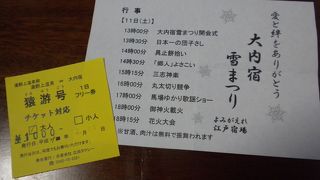 行事
【11日(土)】
13時00分 大内宿雪まつり開会式
13時30分 日本一の団子さし
14時00分
14時30分 「郷人」よさこい
15時15分 三志神楽
16時00分 丸太切り競争
17時00分 馬場ゆかり歌謡ショー
18時00分 御神火戴火
18時15分 花火大会
※甘酒、肉汁は無料で振舞われます
愛と絆をありがとう
大内宿
雪まつり
よみがえれ
江戸宿場
湯野上温泉 ⇔ 大内宿
猿游号
1日
フリー券
チケット対応
小人
発行日 平成